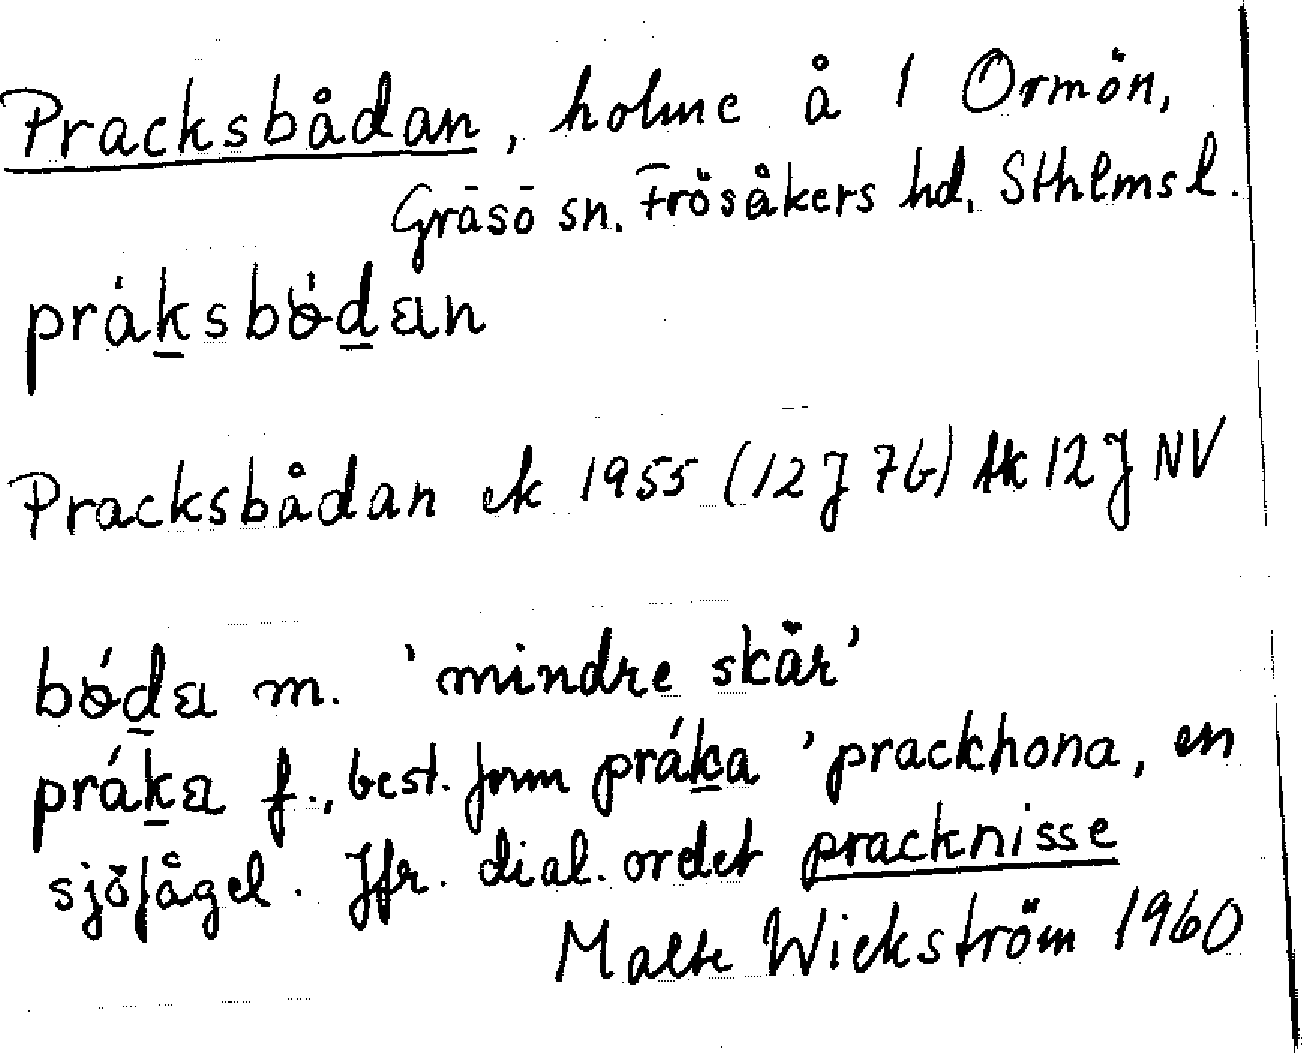 Pracksbådan, holme å 1 Ormön,
Gräsö sn. Frösåkers hd, Sthlms l.
prák̠sbǿd̠an
Pracksbådan ek 1955 (12J 7b) tk 12J NV
bǿd̠a m. 'mindre skär'
prák̠a f., best. form prák̠a 'prackhona, en
sjöfågel. Jfr. dial. ordet pracknisse
Malte Wickström 1960